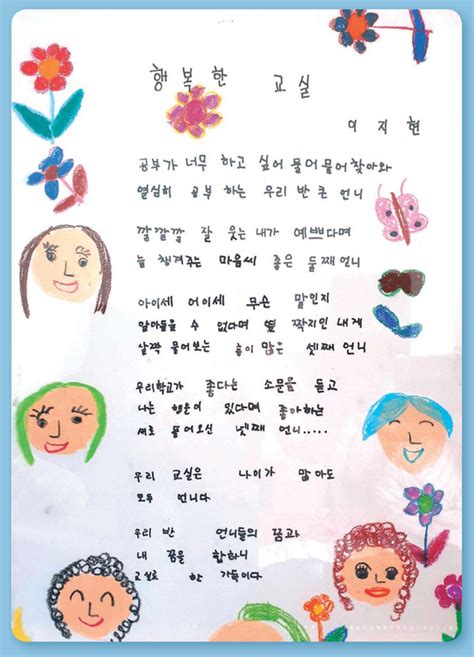 행복한 교실
이지현
공부가 너무 하고 싶어 물어물어찾아와
열심히 공부 하는 우리반 큰 언니
깔깔깔 잘 웃는 내가 예쁘다며
늘 챙겨주는 마음씨 좋은 둘째 언니
아이세 어이세 무슨 말인지
알아들을 수 없다며 옆 짝지인 내게
살짝 물어보는 흥이 많은 셋째 언니
우리학교가 좋다는 소문을 듣고
나는 행운이 있다며 좋아하는
새로 들어오신 넷째 언니.....
우리 교실은 나이가 많아도
모두 언니다
우리 반 언니들의 꿈과
내 꿈을 합하니
교실로 한 가득이다